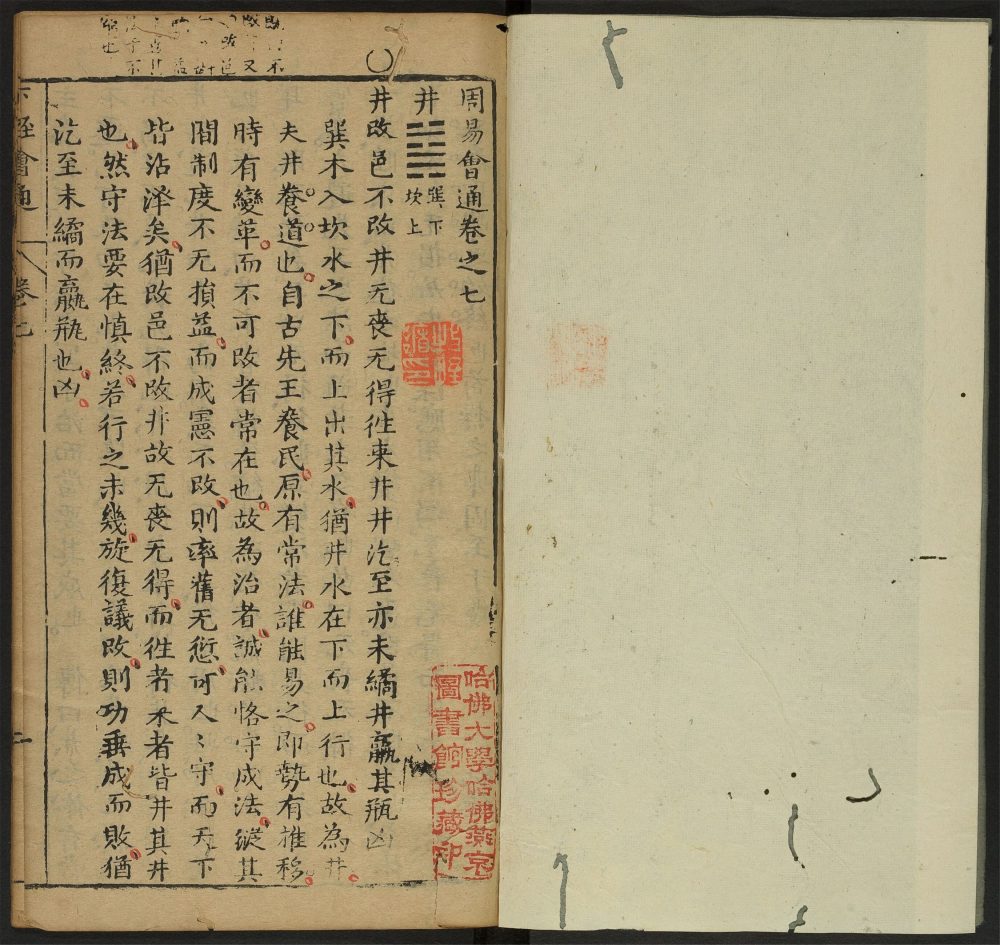 周易會通卷之七
井 巽下 坎上
井改邑不改井无喪无得徃來井井汔至亦未繘井羸其瓶凶
巽木入坎水之下而上出其水猶井水在下而上行也故為井
夫井養道也自古先王養民原有常法誰能易之即勢有推移
時有變革而不可改者常在也故為治者誠能恪守成法縱其
間制度不无損益而成憲不改則率舊无愆可人〻守而天下
皆沾澤矣猶改邑不改井故无喪无得而徃者來者皆井其井
也然守法要在慎終若行之未幾旋復議改則功垂成而敗猶
汔至未繘而羸瓶也凶
下經會通
卷七
一
哈佛大學哈佛燕京
圖書館珍藏印